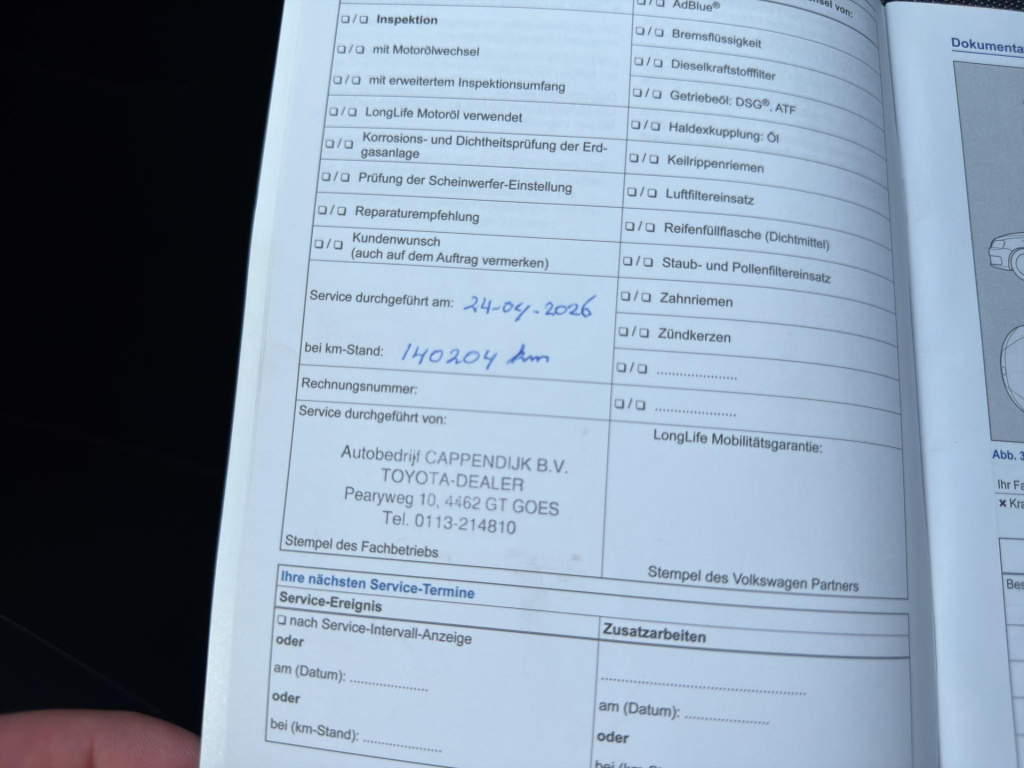 ❏ / ❏ Inspektion
❏ / ❏ mit Motorölwechsel
❏ / ❏ mit erweitertem Inspektionsumfang
❏ / ❏ LongLife Motoröl verwendet
❏ / ❏ Korrosions- und Dichtheitsprüfung der Erd-
gasanlage
❏ / ❏ Prüfung der Scheinwerfer-Einstellung
❏ / ❏ Reparaturempfehlung
❏ / ❏ Kundenwunsch
(auch auf dem Auftrag vermerken)
Service durchgeführt am: 24-04-2026
bei km-Stand: 140204 km
Rechnungsnummer:
Service durchgeführt von:
Autobedrijf CAPPENDIJK B.V.
TOYOTA-DEALER
Pearyweg 10, 4462 GT GOES
Tel. 0113-214810
Stempel des Fachbetriebs
von:
❏ / ❏ AdBlue®
❏ / ❏ Bremsflüssigkeit
❏ / ❏ Dieselkraftstofffilter
❏ / ❏ Getriebeöl: DSG®, ATF
❏ / ❏ Haldexkupplung: Öl
❏ / ❏ Keilrippenriemen
❏ / ❏ Luftfiltereinsatz
❏ / ❏ Reifenfüllflasche (Dichtmittel)
❏ / ❏ Staub- und Pollenfiltereinsatz
❏ / ❏ Zahnriemen
❏ / ❏ Zündkerzen
❏ / ❏ ......................
❏ / ❏ ......................
LongLife Mobilitätsgarantie:
Stempel des Volkswagen Partners
Ihre nächsten Service-Termine
Service-Ereignis
❏ nach Service-Intervall-Anzeige
oder
am (Datum): .....................
oder
bei (km-Stand): .....................
Zusatzarbeiten
......................................................
am (Datum): .....................
oder
Abb. 3